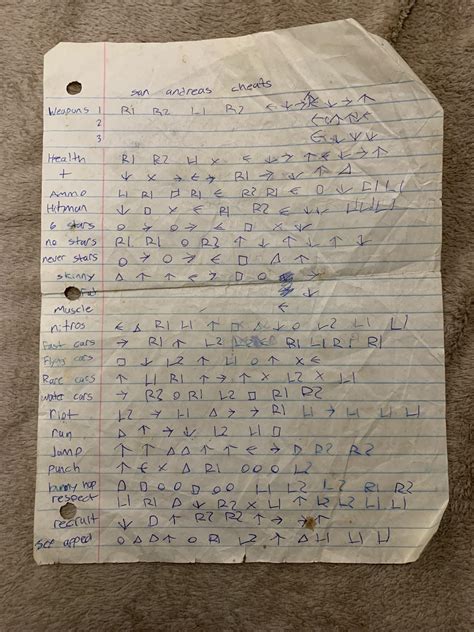 san andreas cheats
Weapons 1 R1 R2 L1 R2 ← ↓ → ↑ ← ↓ → ↑
2
3 ← ↓ ↓ ↓
Health R1 R2 L1 X ← ↓ → ↑ ← ↓ → ↑
Ammo L1 R1 □ R1 ← R2 R1 ← □ ↓ L1 L1
Hitman ↓ □ X ← R1 R2 ← ↓ ↓ L1 L1 L1
6 stars O → O → ← □ X ↓
no stars R1 R1 O R2 ↑ ↓ ↑ ↓ ↑ ↓
never stars O → O → ← □ △ ↑
skinny △ ↑ ↑ ← → □ O →
↓
muscle ←
nitros ← △ R1 L1 ↑ □ △ ↓ O L2 L1 L1
Fast cars → R1 ↑ L2 R1 L1 R1 R1
Flying cars □ ↓ L2 ↑ L1 O ↑ X ←
Rare cars ↑ L1 R1 ↑ → ↑ X L2 X L1
water cars → R2 O R1 L2 □ R1 R2
riot L2 → L1 △ → R1 L1 → L1 L1 L1
run △ ↑ → ↓ L2 L1 □
Jamp ↑ ↑ △ △ ↑ ↑ ← → □ R2 R2
punch ↑ ← X △ R1 O O O L2
bunny hop △ □ O O □ O O L1 L2 L2 R1 R2
respect L1 R1 △ ↓ R2 X L1 ↑ L2 L2 L1 L1
recruit ↓ □ ↑ R2 R2 ↑ → → ↑
sex apped O △ △ ↑ O R1 L2 ↑ △ L1 L1 L1